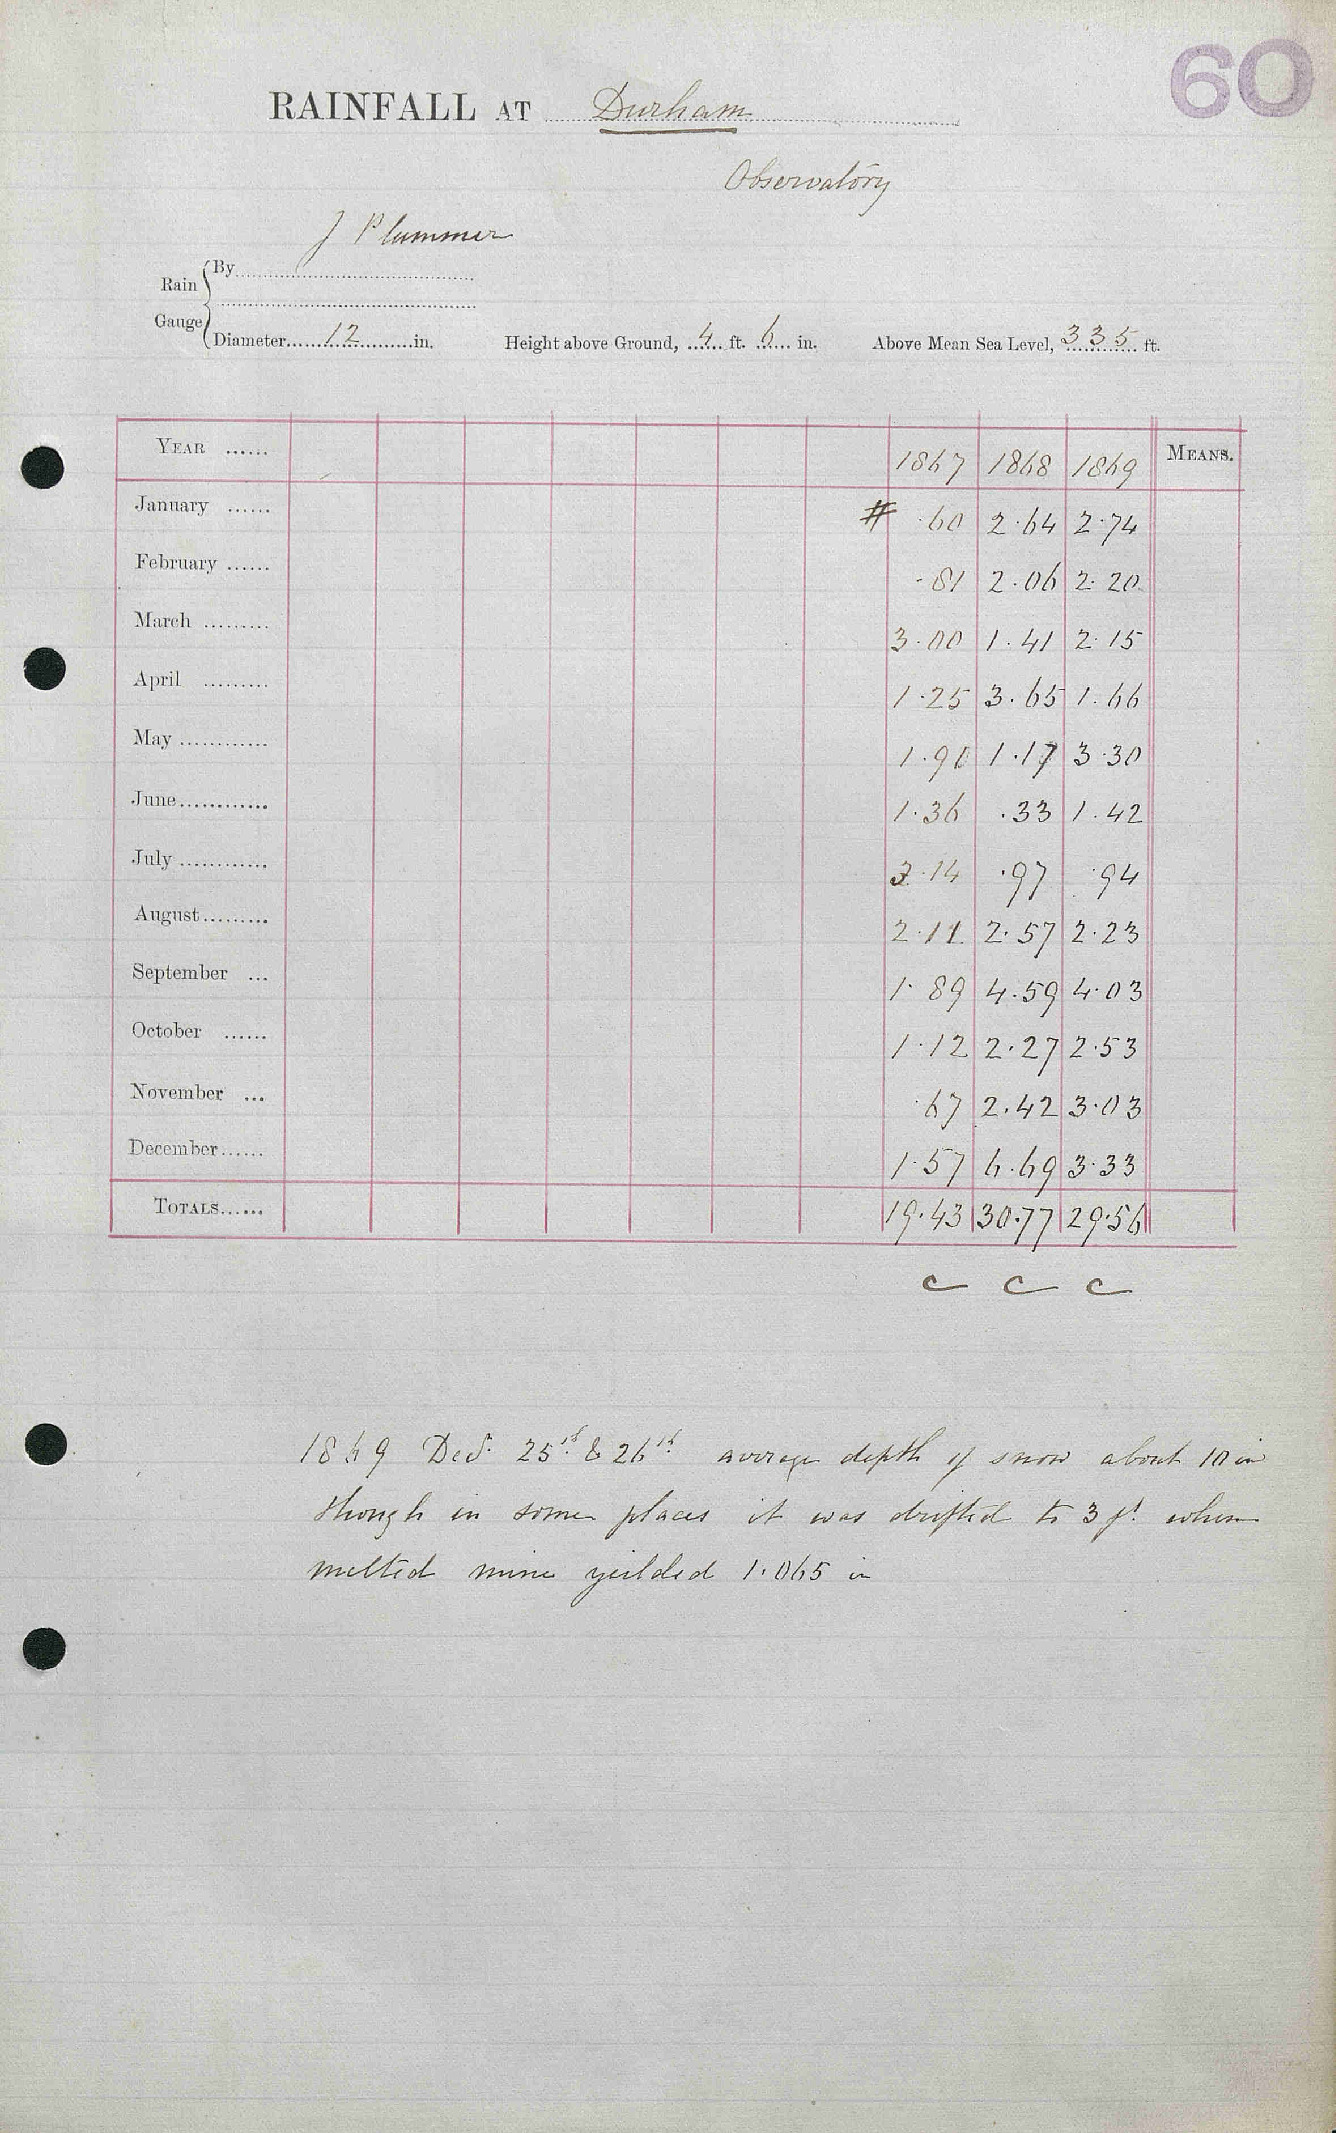 60
RAINFALL AT Durham
Observatory
J Plummer
Rain Gauge
By
Diameter 12 in. Height above Ground, 4 ft. 6 in. Above Mean Sea Level, 335 ft.
YEAR ...... 1867 1868 1869 MEANS.
January ...... # .60 2.64 2.74
February ...... .81 2.06 2.20
March ......... 3.00 1.41 2.15
April ......... 1.25 3.65 1.66
May ............ 1.91 1.17 3.30
June ............ 1.36 .33 1.42
July ............ 3.14 .97 .94
August ......... 2.11 2.57 2.23
September ... 1.89 4.59 4.03
October ...... 1.12 2.27 2.53
November ... .67 2.42 3.03
December ...... 1.57 6.69 3.33
TOTALS ...... 19.43 30.77 29.56
c c c
1869 Dec. 25th & 26th average depth of snow about 10 in
though in some places it was drifted to 3 ft. when
melted mine yeilded 1.065 in